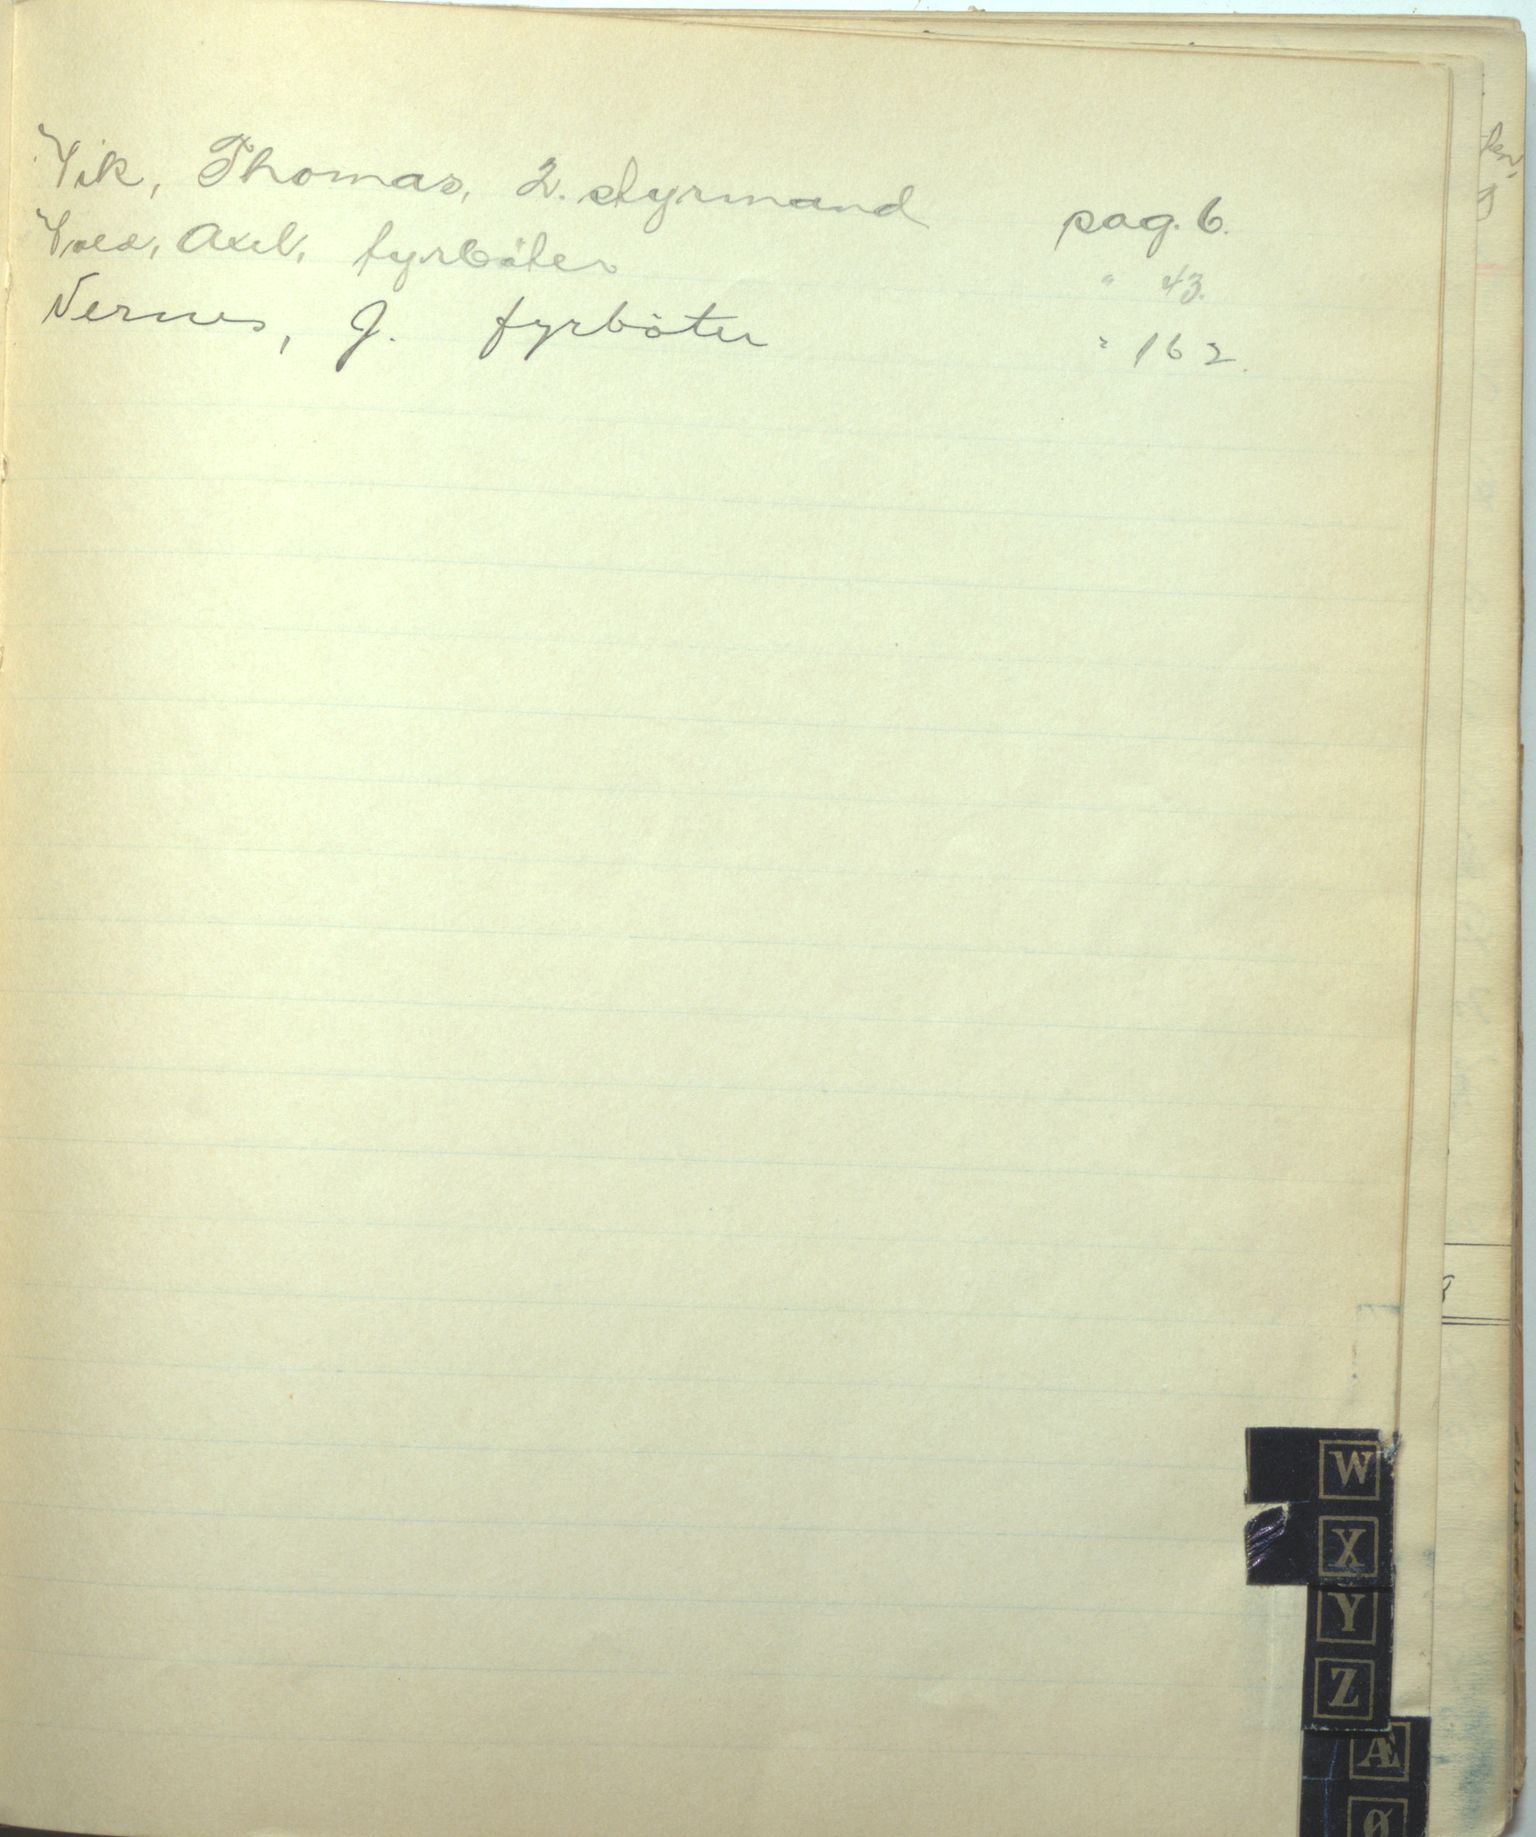 Vik, Thomas, 2. styrmand pag. 6.
Vold, Axel, fyrböter " 43.
Vernes, J. fyrböter " 162.
W
X
Y
Z
Æ
Ø